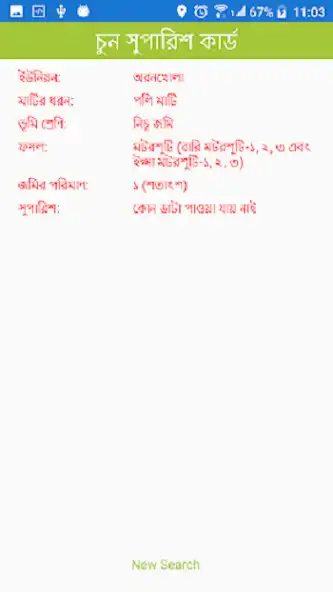 67% 11:03
চুন সুপারিশ কার্ড
ইউনিয়ন: অরনখোলা
মাটির ধরন: পলি মাটি
ভূমি শ্রেণি: নিচু জমি
ফসল: মটরশুটি (বারি মটরশুটি-১, ২, ৩ এবং
ইপ্সা মটরশুটি-১, ২. ৩)
জমির পরিমাণ: ১ (শতাংশ)
সুপারিশ: কোন ডাটা পাওয়া যায় নাই
New Search